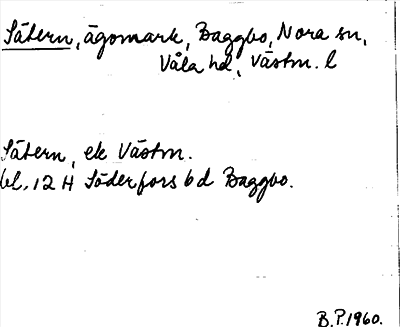 Sätern, ägomark, Baggbo, Nora sn,
Våla hd, Västm. l
Sätern, ek Västm.
bl. 12 H Söderfors 6 d Baggbo.
B.P. 1960.